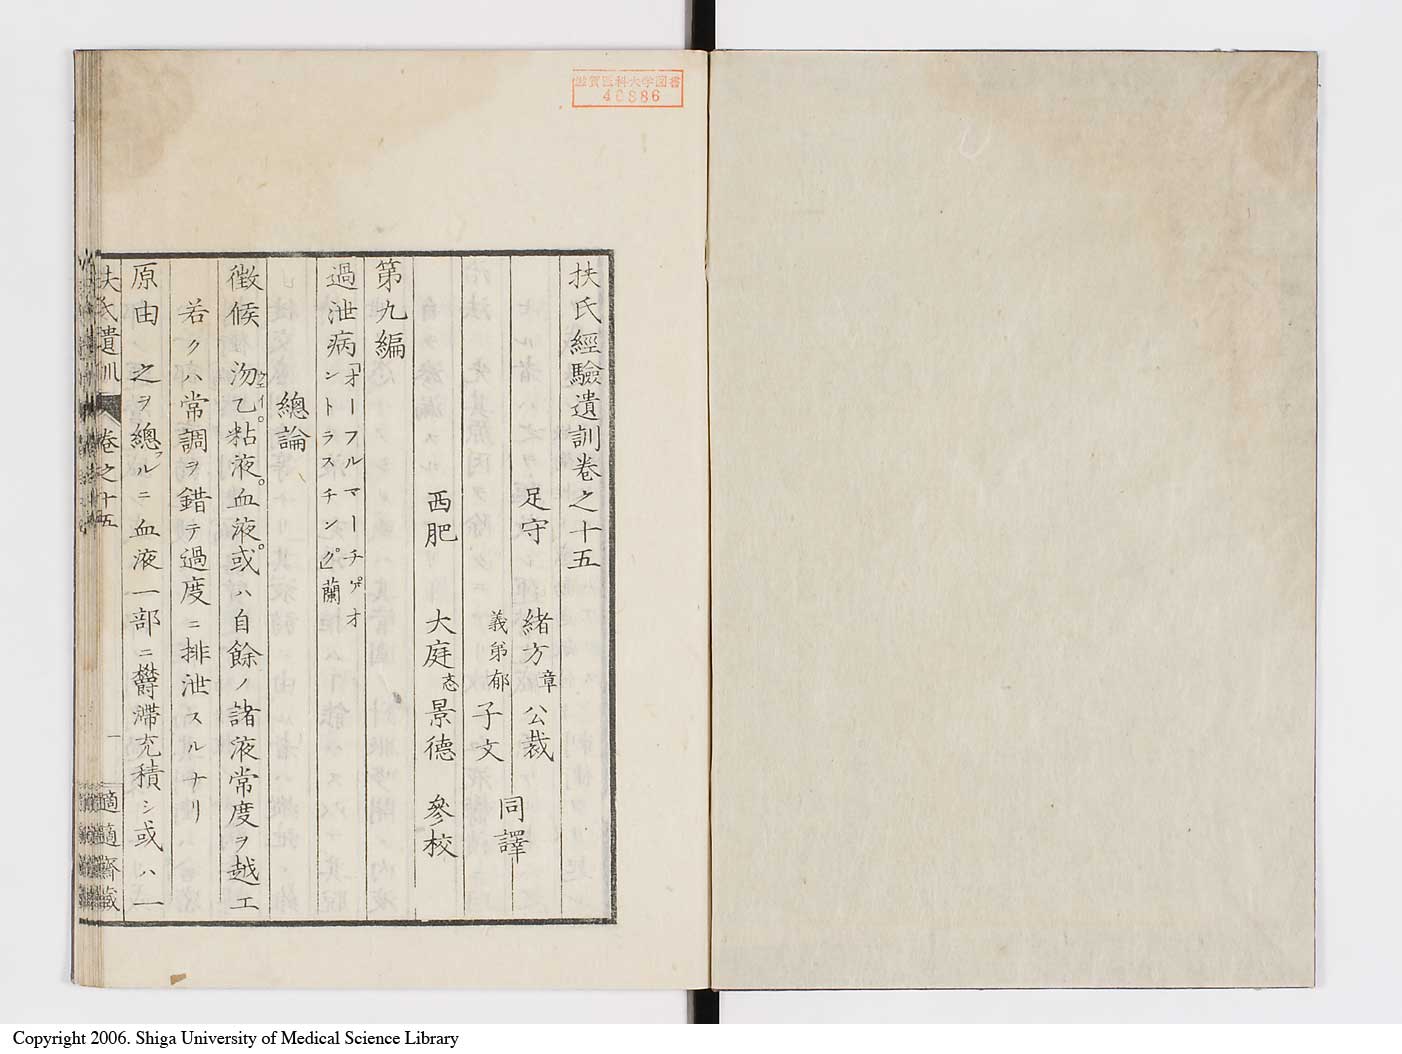 滋賀医科大学図書
46886
扶氏經驗遺訓卷之十五
足守 緒方章公裁
義弟郁子文 同譯
西肥 大庭忞景德 參校
第九編
過泄病「オーフルマーチゲオントラスチング」蘭
總論
徵候 沕乙粘液血液或ハ自餘ノ諸液常度ヲ越エ
若クハ常調ヲ錯テ過度ニ排泄スルナリ
原由 之ヲ總フルニ血液一部ニ欝滯充積シ或ハ一
扶氏遺訓 卷之十五 一 適適齋藏
Copyright 2006. Shiga University of Medical Science Library